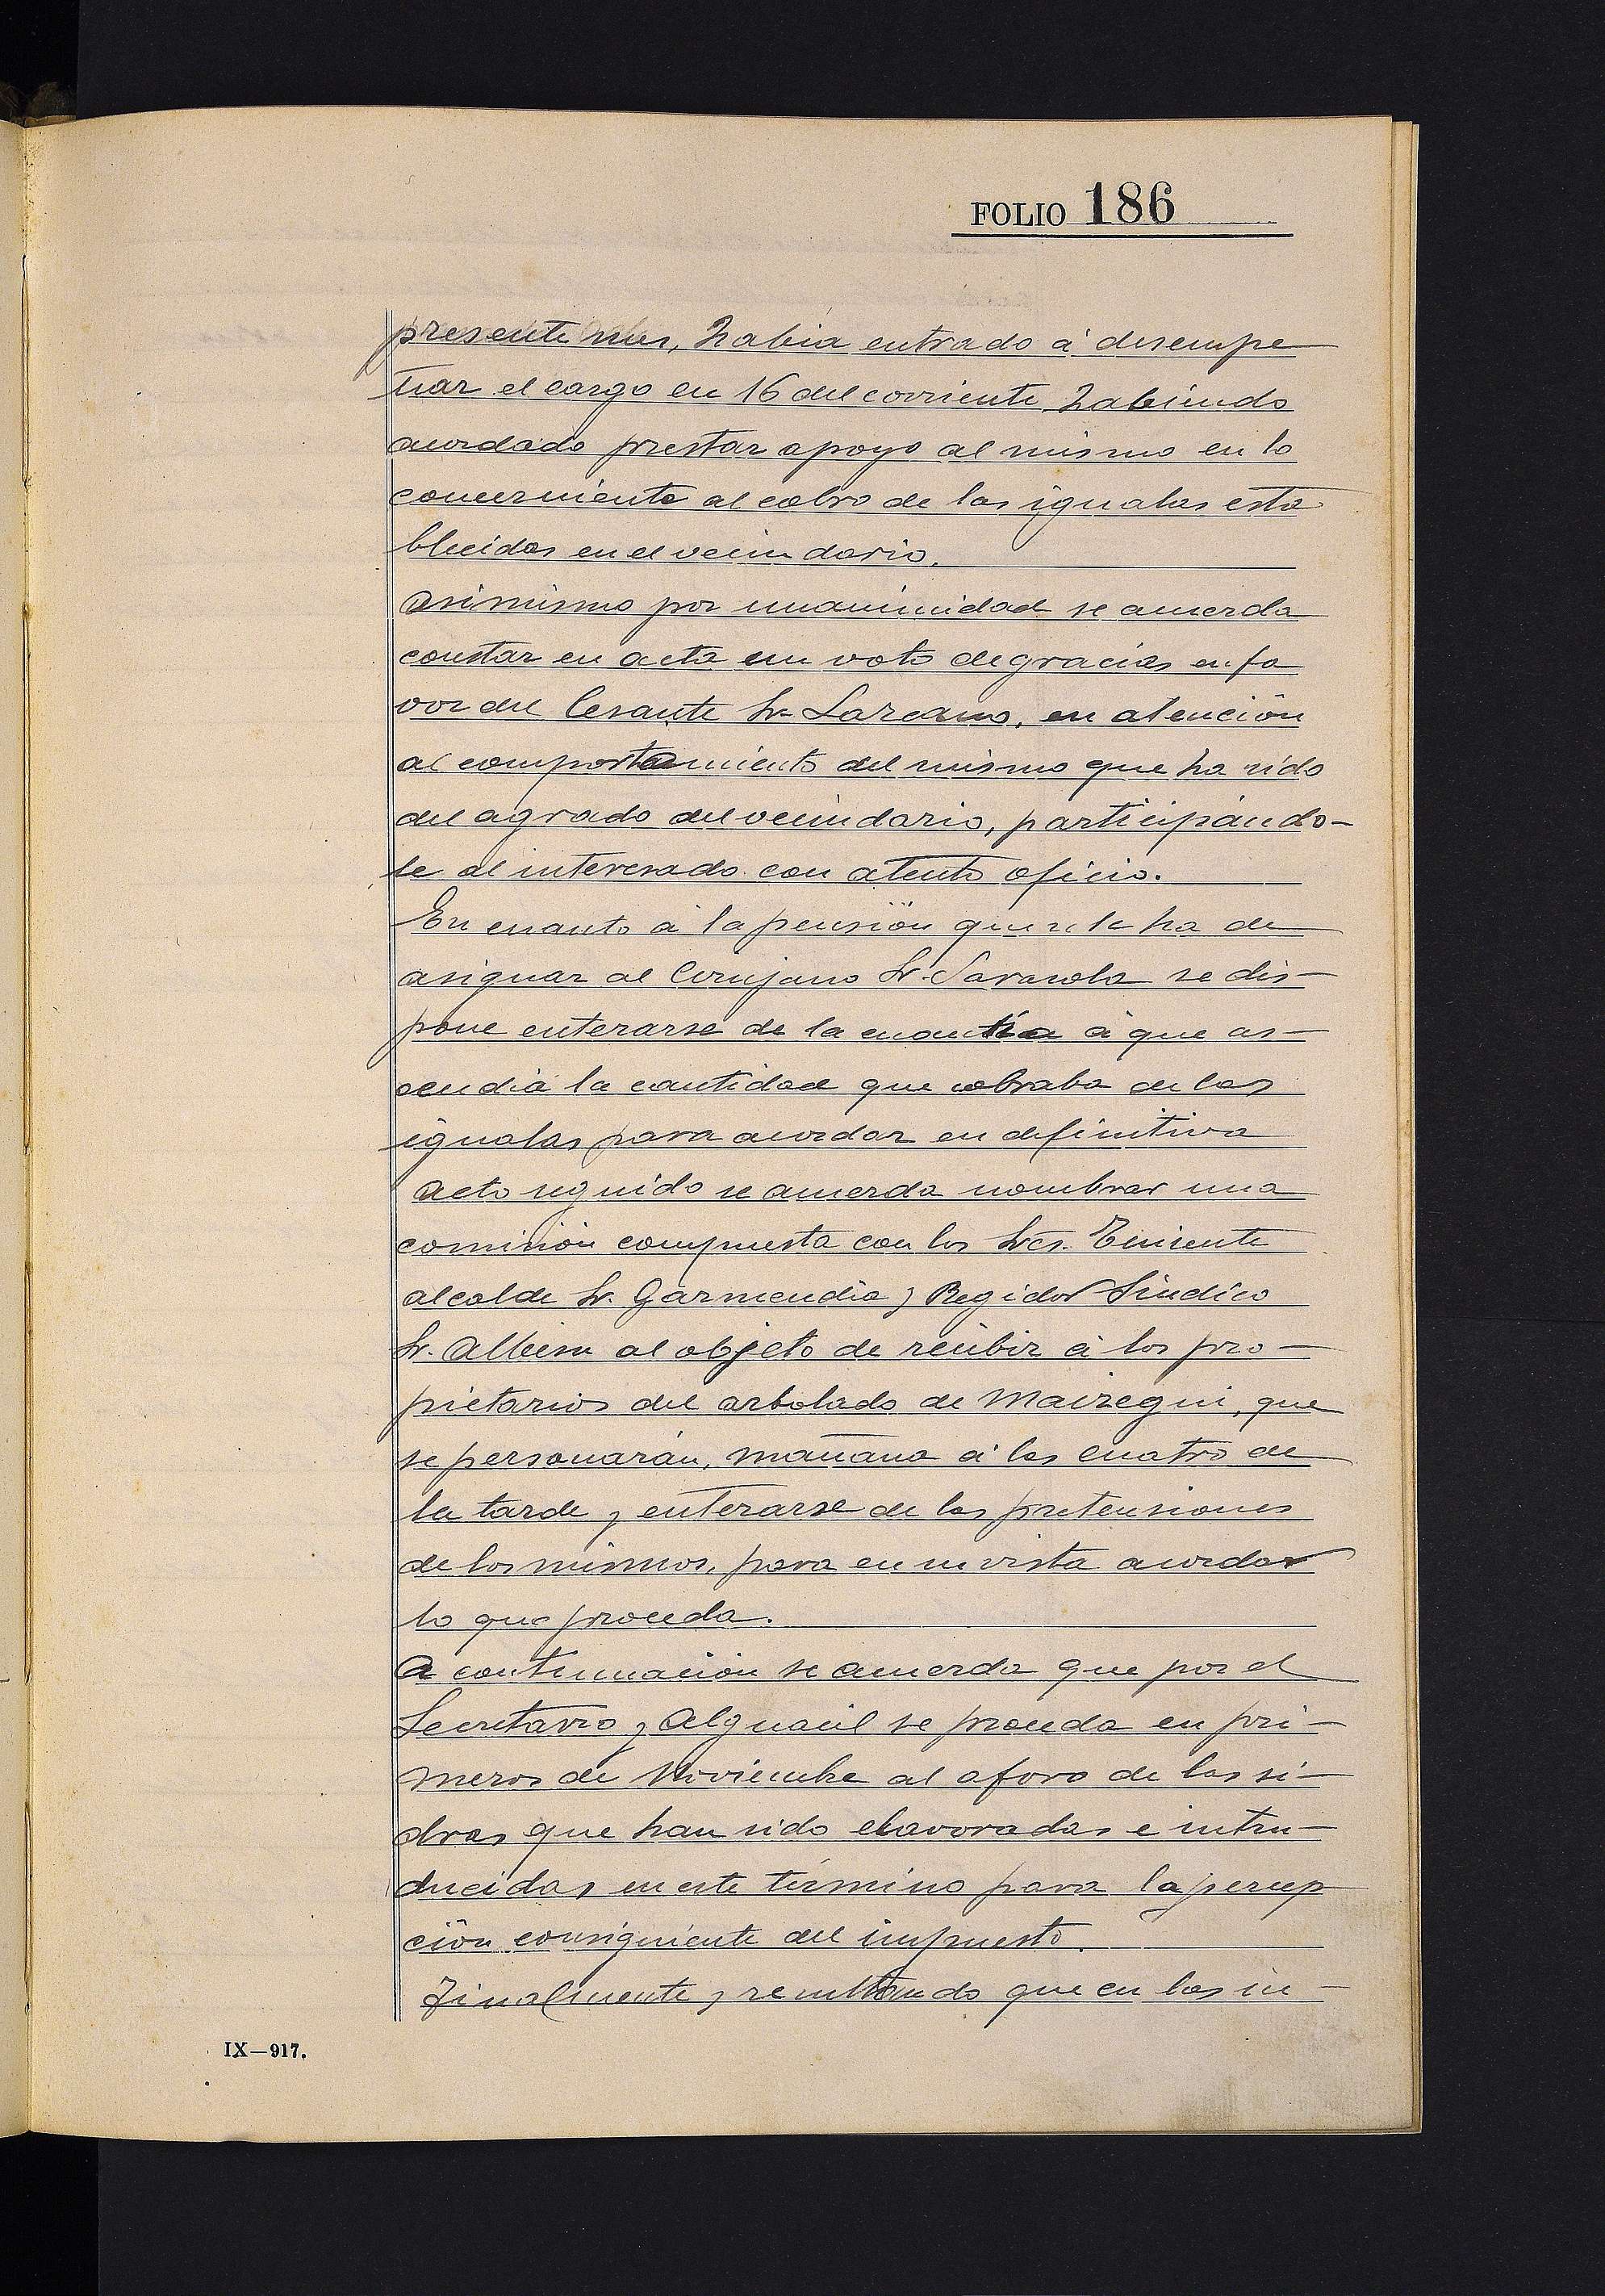 FOLIO 186
presente mes, habia entrado á desempe
ñar el cargo en 16 del corriente habiendo
acordado prestar apoyo al mismo en lo
concerniente al cobro de las igualas esta
blecidas en el vecindario.
Asimismo por unanimidad se acuerda
constar en acta un voto de gracias en fa
vor del Cesante Sr. Lazcano, en atención
al comportamiento del mismo que ha sido
del agrado del vecindario, participándo-
le al interesado con atento oficio.
En cuanto á la pensión que se le ha de
asignar al Cirujano Sr. Sarasola se dis-
pone enterarse de la cuantia á que as-
cendia la cantidad que cobraba de las
igualas para acordar en definitiva
Acto seguido se acuerda nombrar una
comisión compuesta con los Sres. Teniente
alcalde Sr. Garmendia y Regidor Sindico
Sr. Albisu al objeto de recibir á los pro-
pietarios del arbolado de Maizegui, que
se personarán, mañana á las cuatro de
la tarde y enterarse de las pretensiones
de los mismos, para en su vista acordar
lo que proceda.
A continuación se acuerda que por el
Secretario y Alguacil se proceda en pri-
meros de Noviembre al aforo de las si-
dras que han sido elavoradas e intru-
ducidas en este término para la percep
ción consiguiente del impuesto.
Finalmente y resultando que en las in-
IX—917.